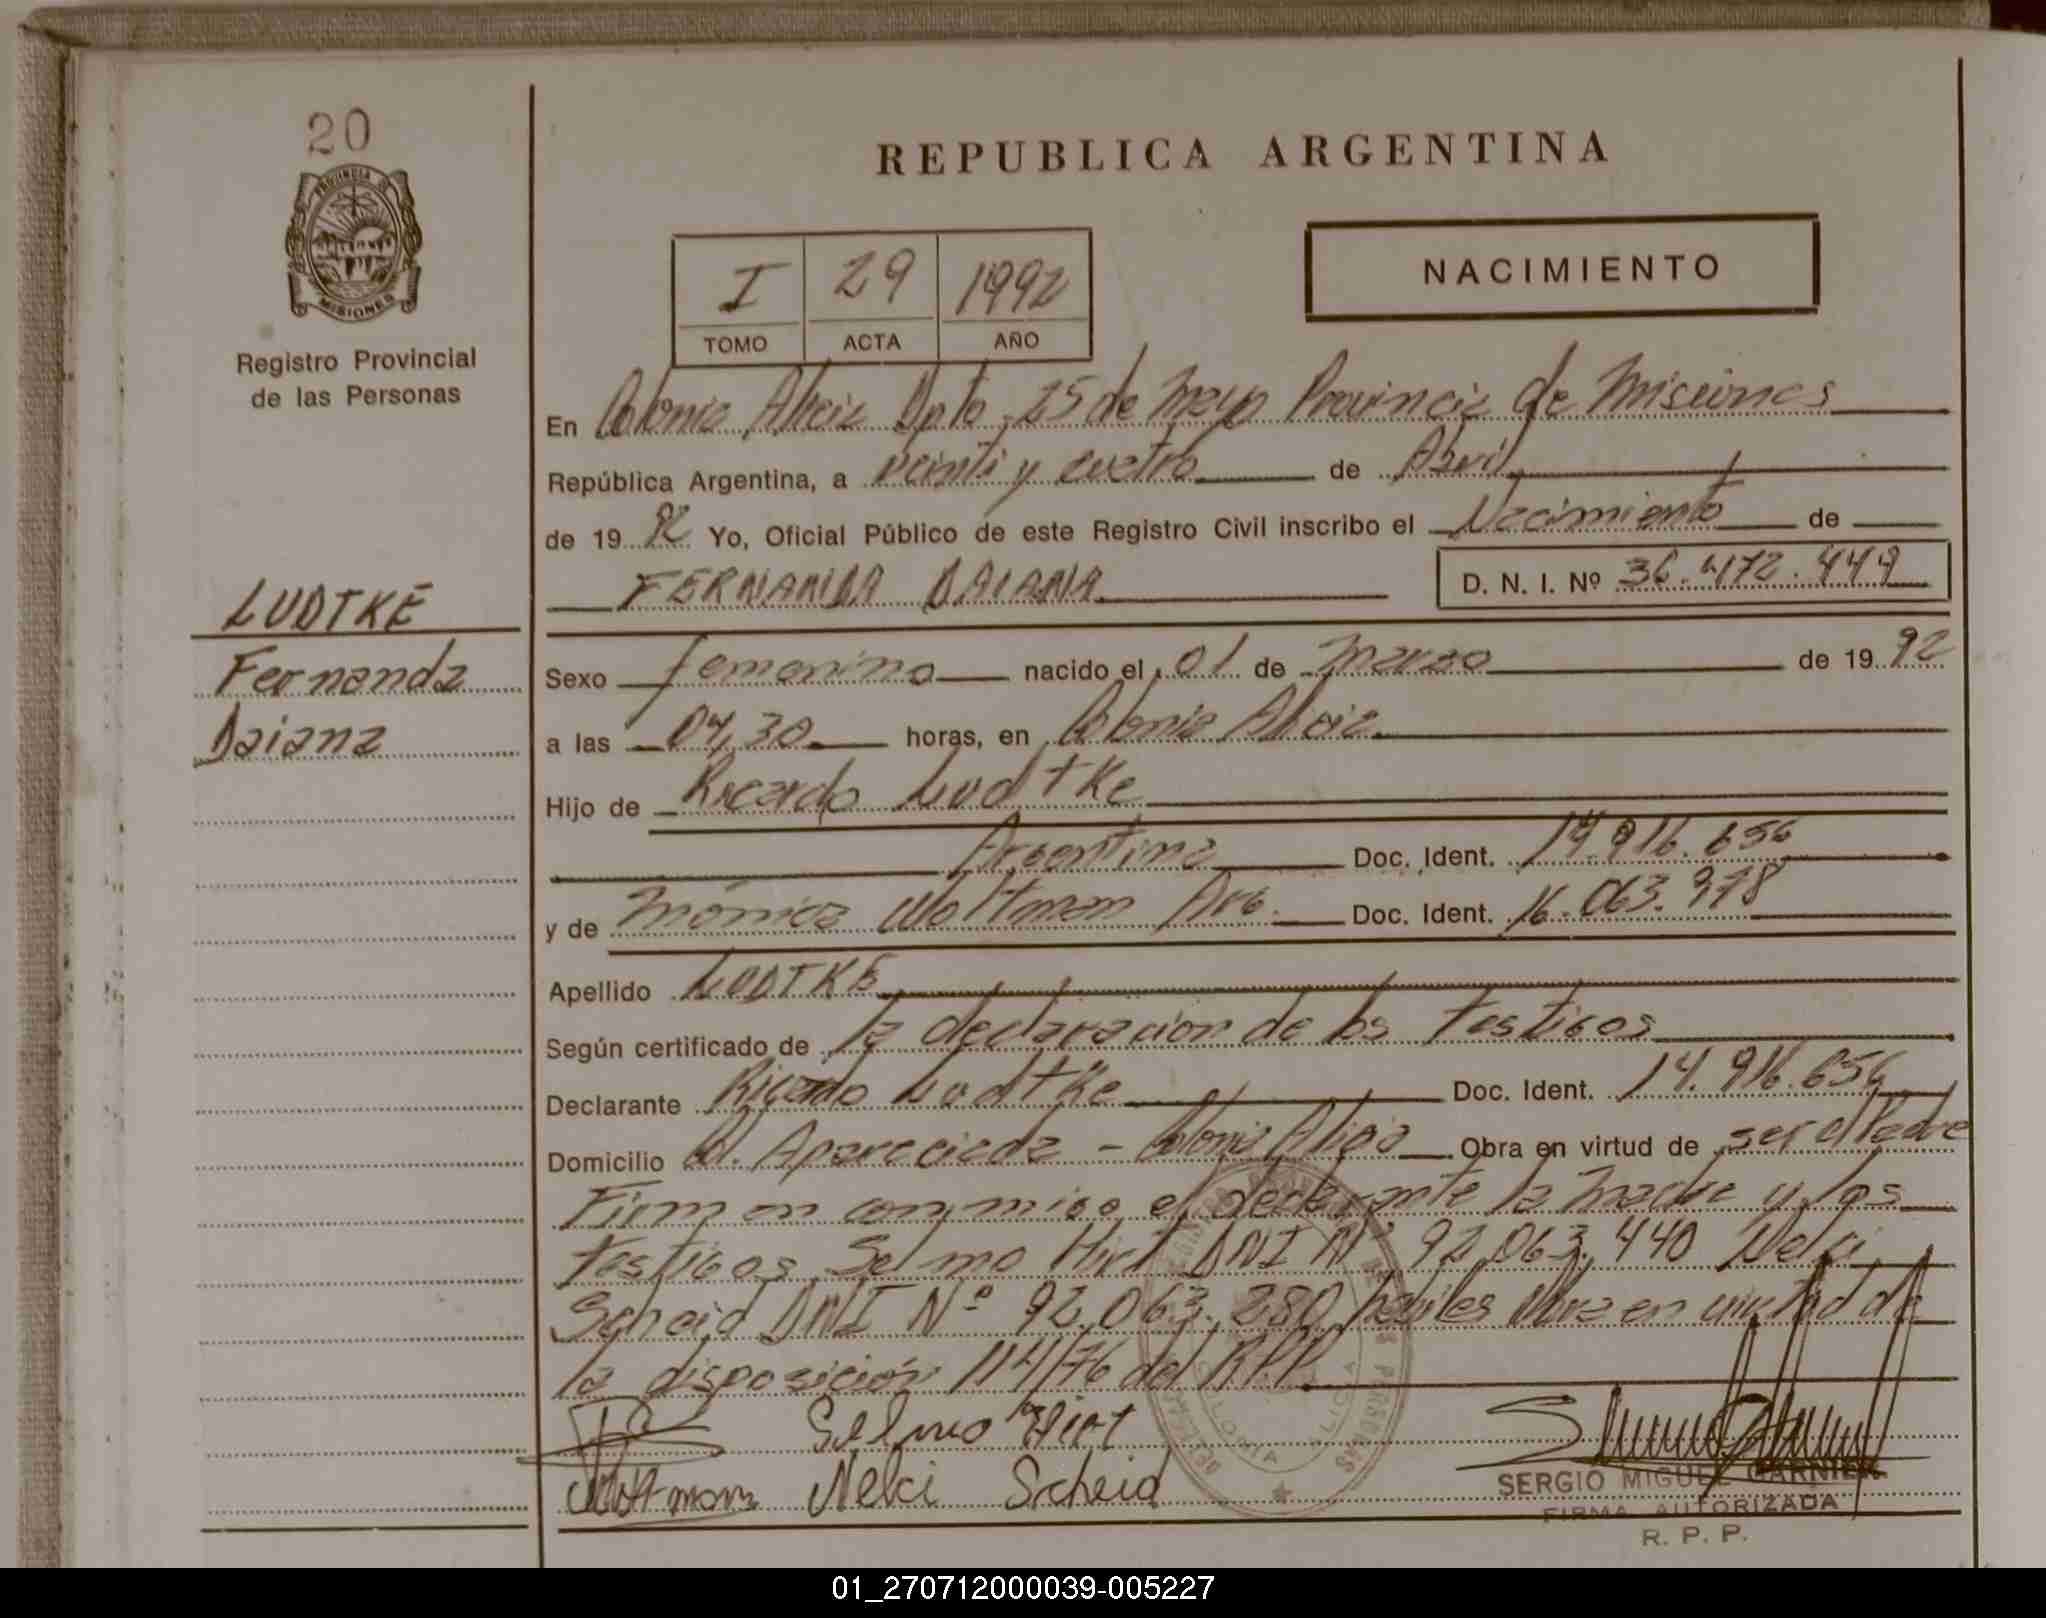 20
PROVINCIA DE
MISIONES
Registro Provincial
de las Personas
LUDTKE
Fernanda
Daiana
REPUBLICA ARGENTINA
I 29 1992
TOMO ACTA AÑO
NACIMIENTO
En Colonia Alicia Dpto. 25 de Mayo Provincia de Misiones
República Argentina, a veinti y cuatro de Abril
de 19 92 Yo, Oficial Público de este Registro Civil inscribo el Nacimiento de
FERNANDA DAIANA D. N. I. Nº 36.472.449
Sexo femenino nacido el 01 de Marzo de 19 92
a las 04,30 horas, en Colonia Alicia
Hijo de Ricardo Ludtke
Argentina Doc. Ident. 14.916.656
y de Mónica Woltman Arg. Doc. Ident. 16.063.978
Apellido LUDTKE
Según certificado de la declaración de los testigos
Declarante Ricardo Ludtke Doc. Ident. 14.916.656
Domicilio Col. Apareciada - Colonia Alicia Obra en virtud de ser el Padre
Firman conmigo el declarante la madre y los
testigos Selmo Hirt DNI Nº 92.063.440 Nelci
Scheid DNI Nº 92.063.280 habiles Obra en virtud de
la disposición 114/76 del RPP.
Selmo Hirt
Woltman Nelci Scheid
COLONIA ALICIA
SERGIO MIGUEL GARNIER
FIRMA AUTORIZADA
R. P. P.
01_270712000039-005227